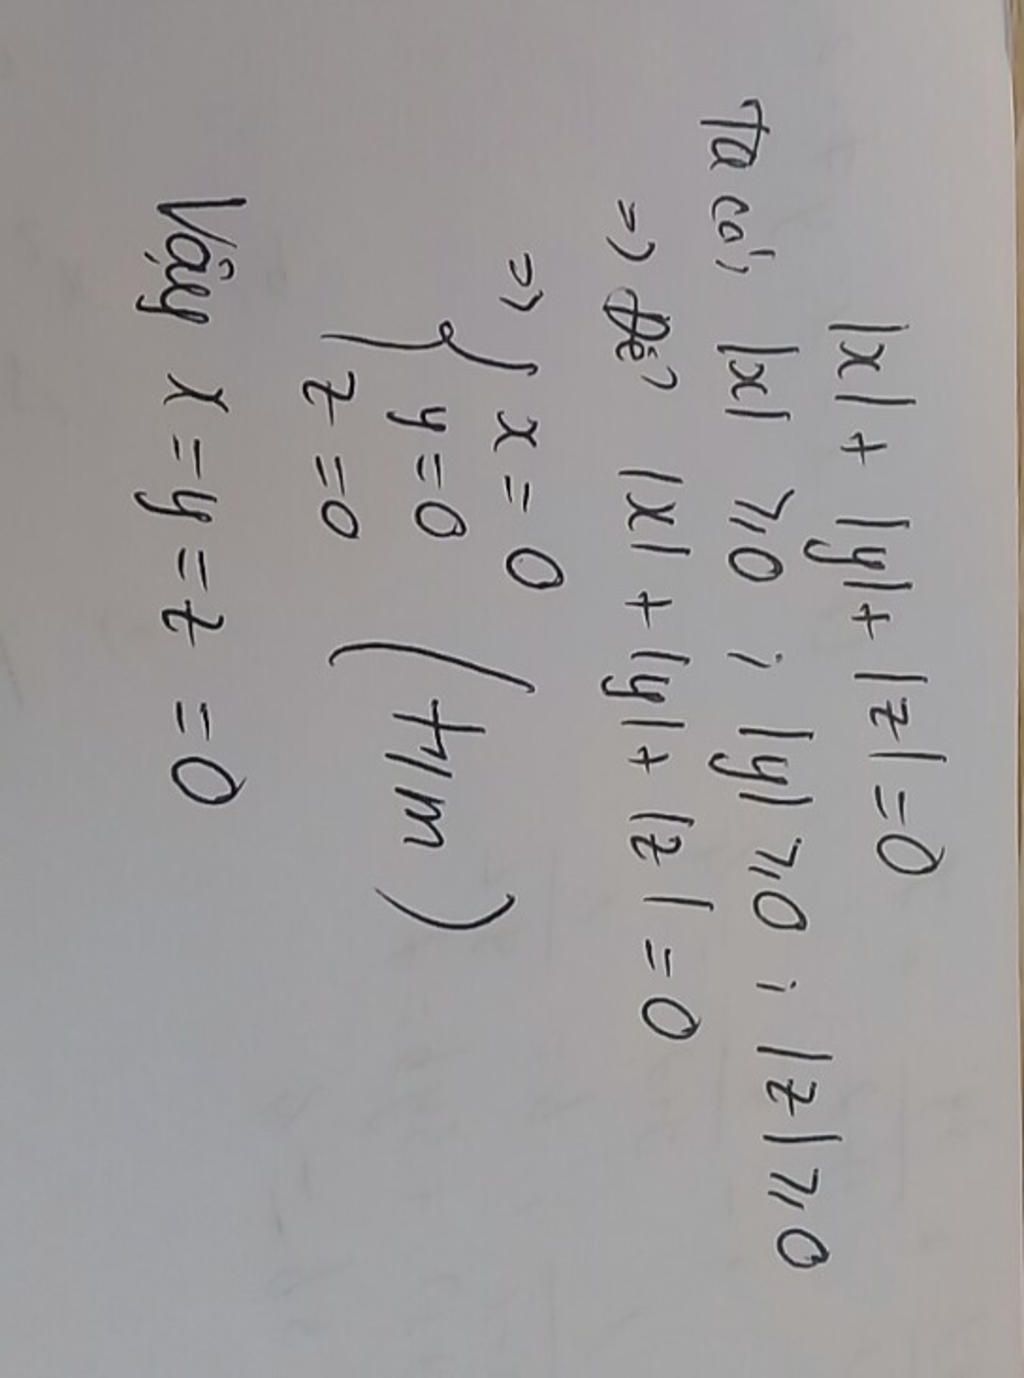 |x| + |y| + |z| = 0
Ta có, |x| ⩾ 0 ; |y| ⩾ 0 ; |z| ⩾ 0
=> Để |x| + |y| + |z| = 0
=> { x = 0
y = 0 (t/m)
z = 0
Vậy x = y = z = 0